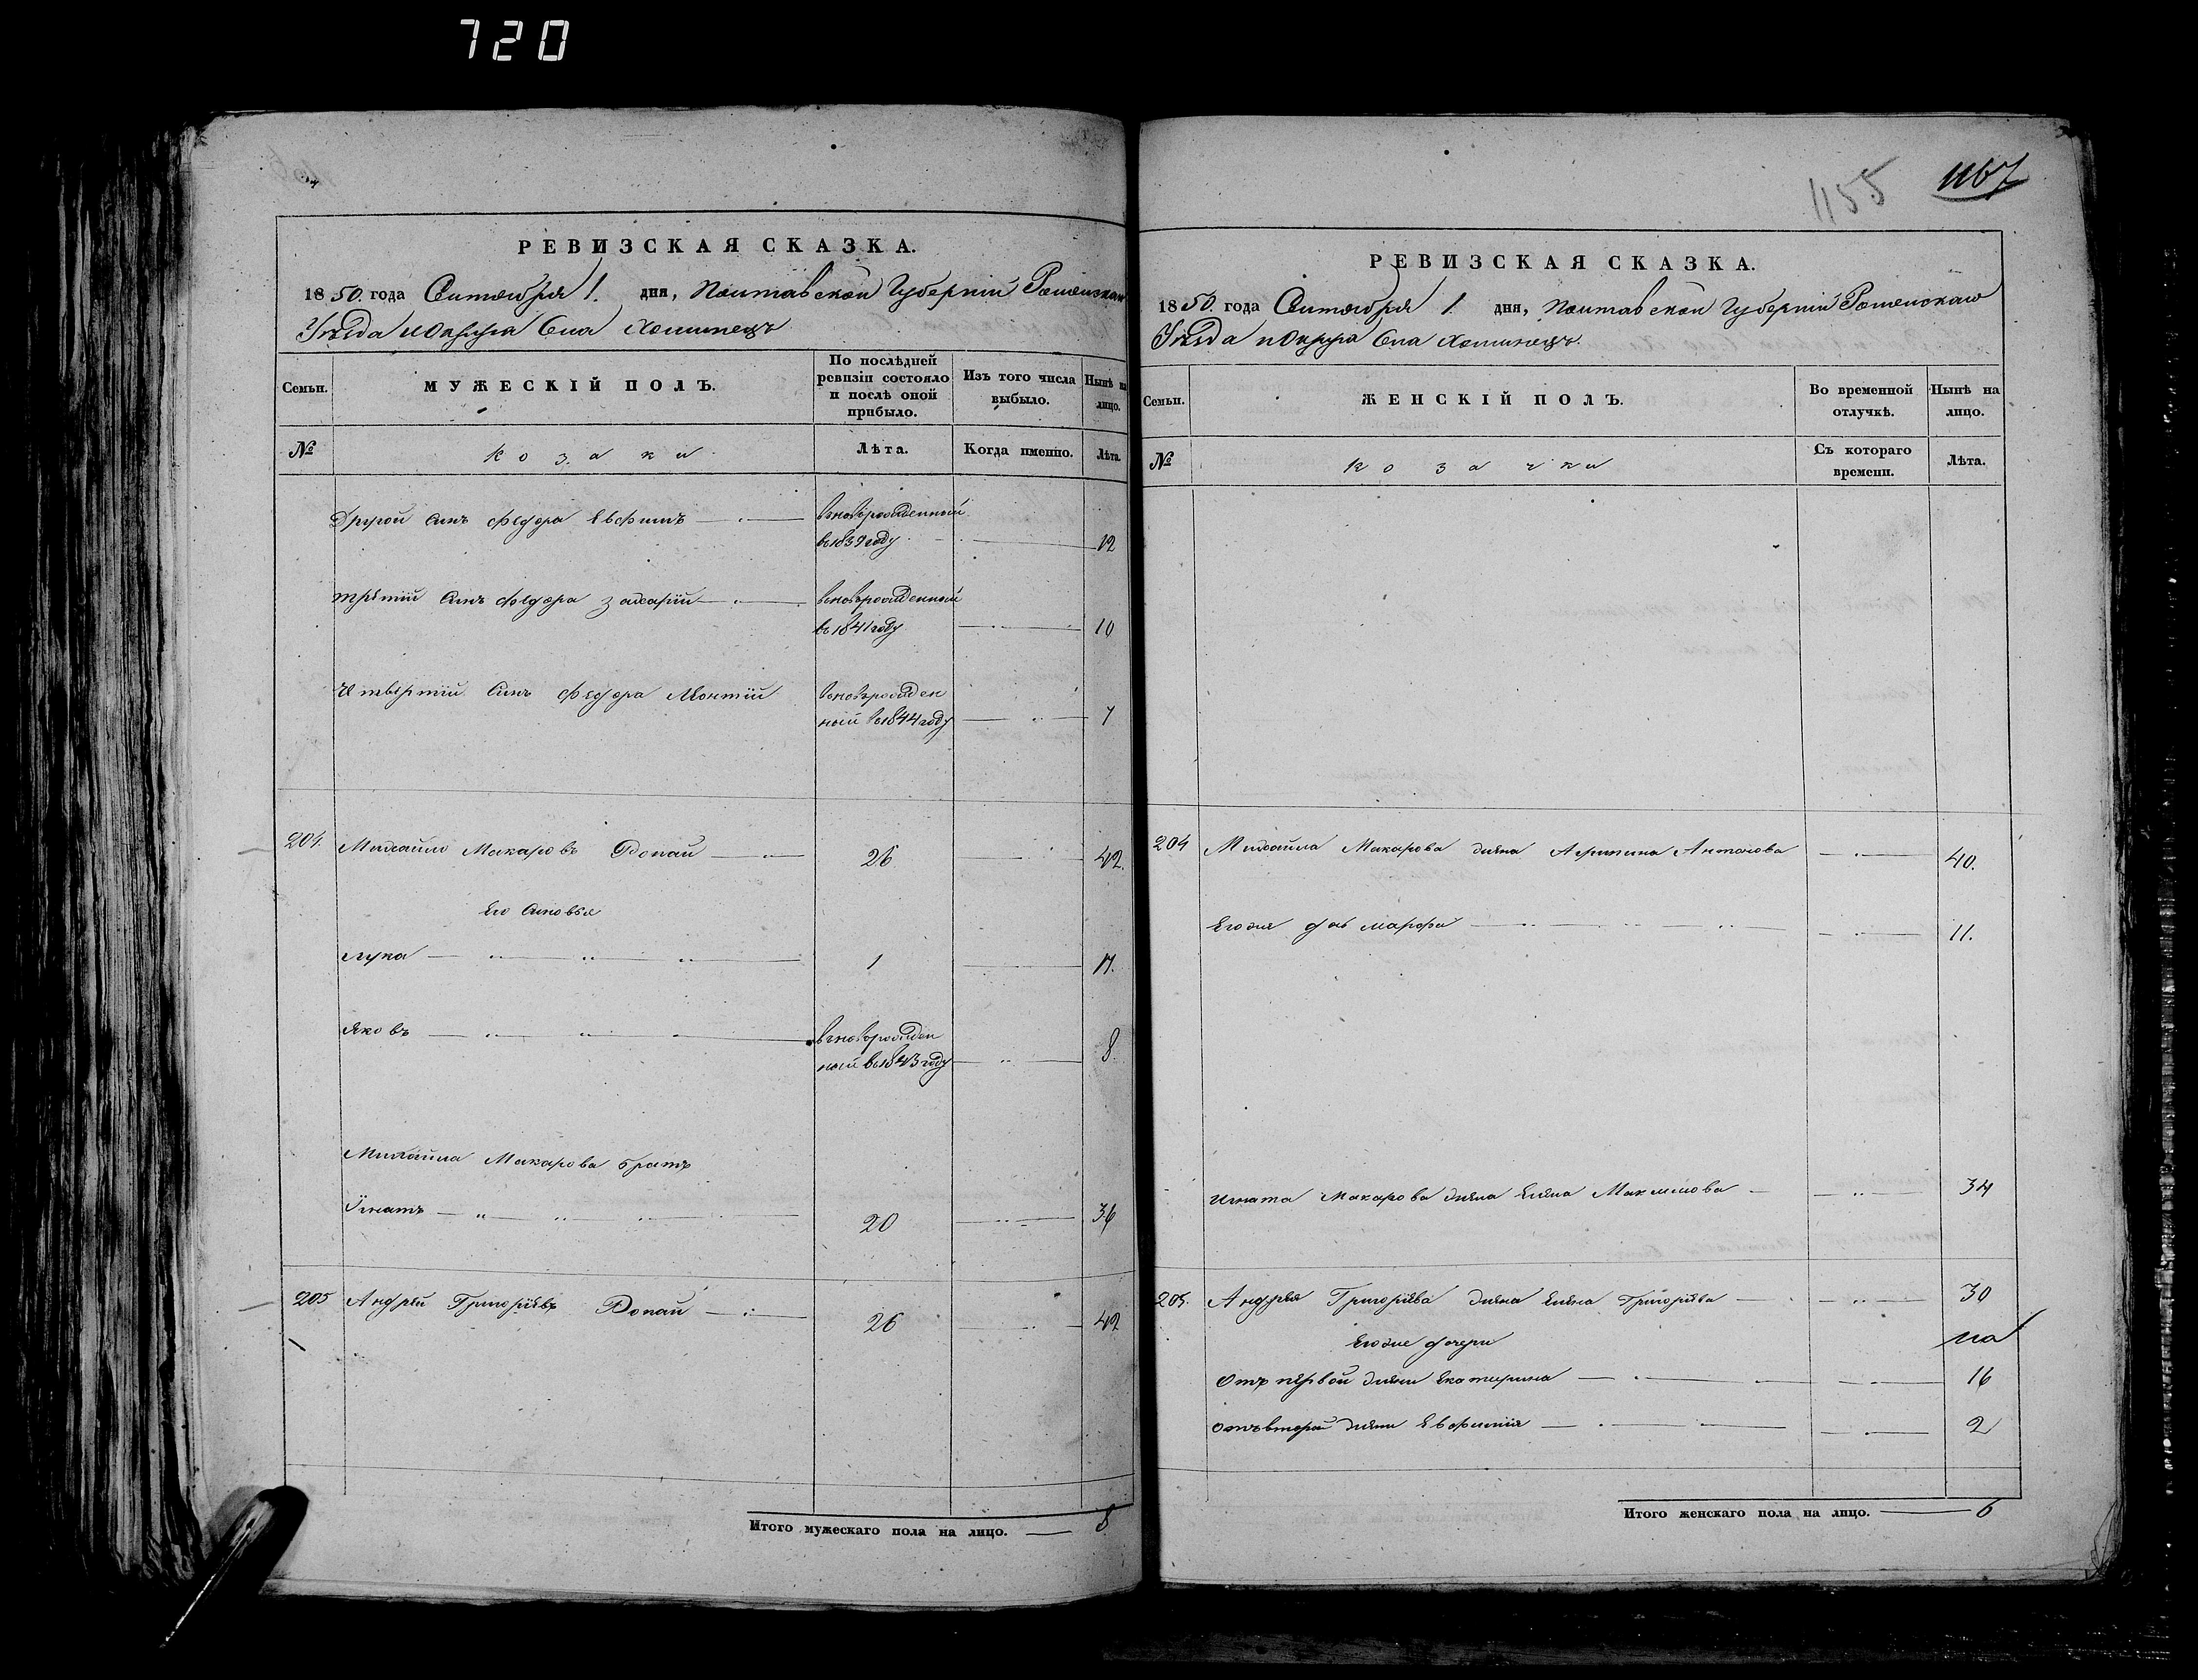 720
РЕВИЗСКАЯ СКАЗКА.
1850. года Сентября 1. дня, Полтавской Губернии Роменскаго
Уѣзда и Округа Села Хоминецъ
Семьи.
МУЖЕСКІЙ ПОЛЪ.
По послѣдней ревизіи состояло и послѣ оной прибыло.
Изъ того числа выбыло.
Нынѣ на лицо.
№
Козаки
Лѣта.
Когда именно.
Лѣта.
Другой Синъ Федора Евфимъ
вновърожденный
въ 1839 году
12
третій Синъ Федора Захарій
вновърожденный
въ 1841 году
10
Четвертій Синъ Федора Леонтій
вновърожден
ный въ 1844 году
7
204. Михайло Макаровъ Допай 26 42.
Его Синовья
Лука 1 17.
Яковъ
вновърожден
ный въ 1843 году
8
Михайла Макарова братъ
Игнатъ 20 36
205 Андрей Григоріевъ Допай 26 42
Итого мужескаго пола на лицо. 8
1155 1167
РЕВИЗСКАЯ СКАЗКА.
1850. года Сентября 1. дня, Полтавской Губерніи Роменскаго
Уѣзда и Округа Села Хоминецъ.
Семьи.
ЖЕНСКІЙ ПОЛЪ.
Во временной отлучкѣ.
Нынѣ на лицо.
№
Козачки
Съ котораго времени.
Лѣта.
204 Михайла Макарова жена Агрипина Антонова 40.
Егоже дочь Марфа 11.
Игната Макарова жена Елена Максимова 34
205. Андрея Григоріева жена Елена Григоріева 30
Егоже дочери
Отъ первой жени Екатерина 16
отъ второй жени Евфимія 2
Итого женскаго пола на лицо. 6